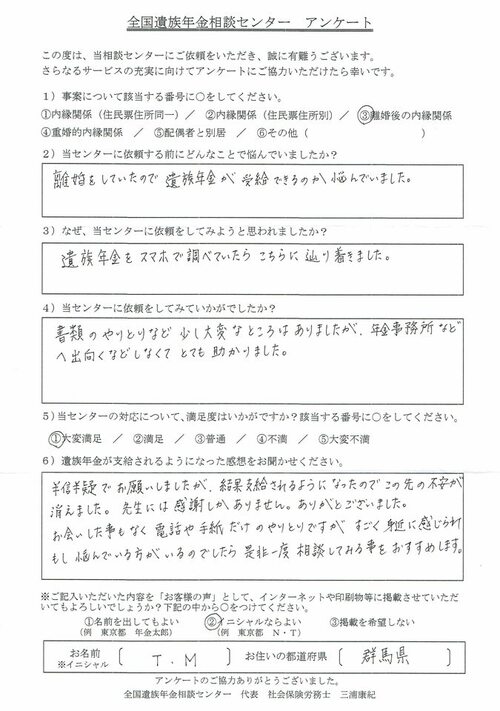 全国遺族年金相談センター　アンケート
この度は、当相談センターにご依頼をいただき、誠に有難うございます。
さらなるサービスの充実に向けてアンケートにご協力いただけたら幸いです。
1）事案について該当する番号に○をしてください。
①内縁関係（住民票住所同一）／　②内縁関係（住民票住所別）／　③離婚後の内縁関係
④重婚的内縁関係　／　⑤配偶者と別居　／　⑥その他（　　　　　　　　　）
2）当センターに依頼する前にどんなことで悩んでいましたか？
離婚をしていたので遺族年金が受給できるのか悩んでいました。
3）なぜ、当センターに依頼をしてみようと思われましたか？
遺族年金をスマホで調べていたらこちらに辿り着きました。
4）当センターに依頼をしてみていかがでしたか？
書類のやりとりなど少し大変なところはありましたが、年金事務所など
へ出向くなどしなくてとても助かりました。
5）当センターの対応について、満足度はいかがですか？該当する番号に○をしてください。
①大変満足　／　②満足　／　③普通　／　④不満　／　⑤大変不満
6）遺族年金が支給されるようになった感想をお聞かせください。
半信半疑でお願いしましたが、結果支給されるようになったのでこの先の不安が
消えました。先生には感謝しかありません。ありがとございました。
お会いした事もなく電話や手紙だけのやりとりですがすごく身近に感じられ
もし悩んでいる方がいるのでしたら是非一度相談してみる事をおすすめします。
※ご記入いただいた内容を「お客様の声」として、インターネットや印刷物等に掲載させていただ
いてもよろしいでしょうか？下記の中から○をつけてください。
①名前を出してもよい　②イニシャルならよい　③掲載を希望しない
（例　東京都　年金太郎）　（例　東京都　N・T）
お名前　※イニシャル　〔　T．M　〕　お住いの都道府県　〔　群馬県　〕
アンケートのご協力ありがとうございました。
全国遺族年金相談センター　代表　社会保険労務士　三浦康紀